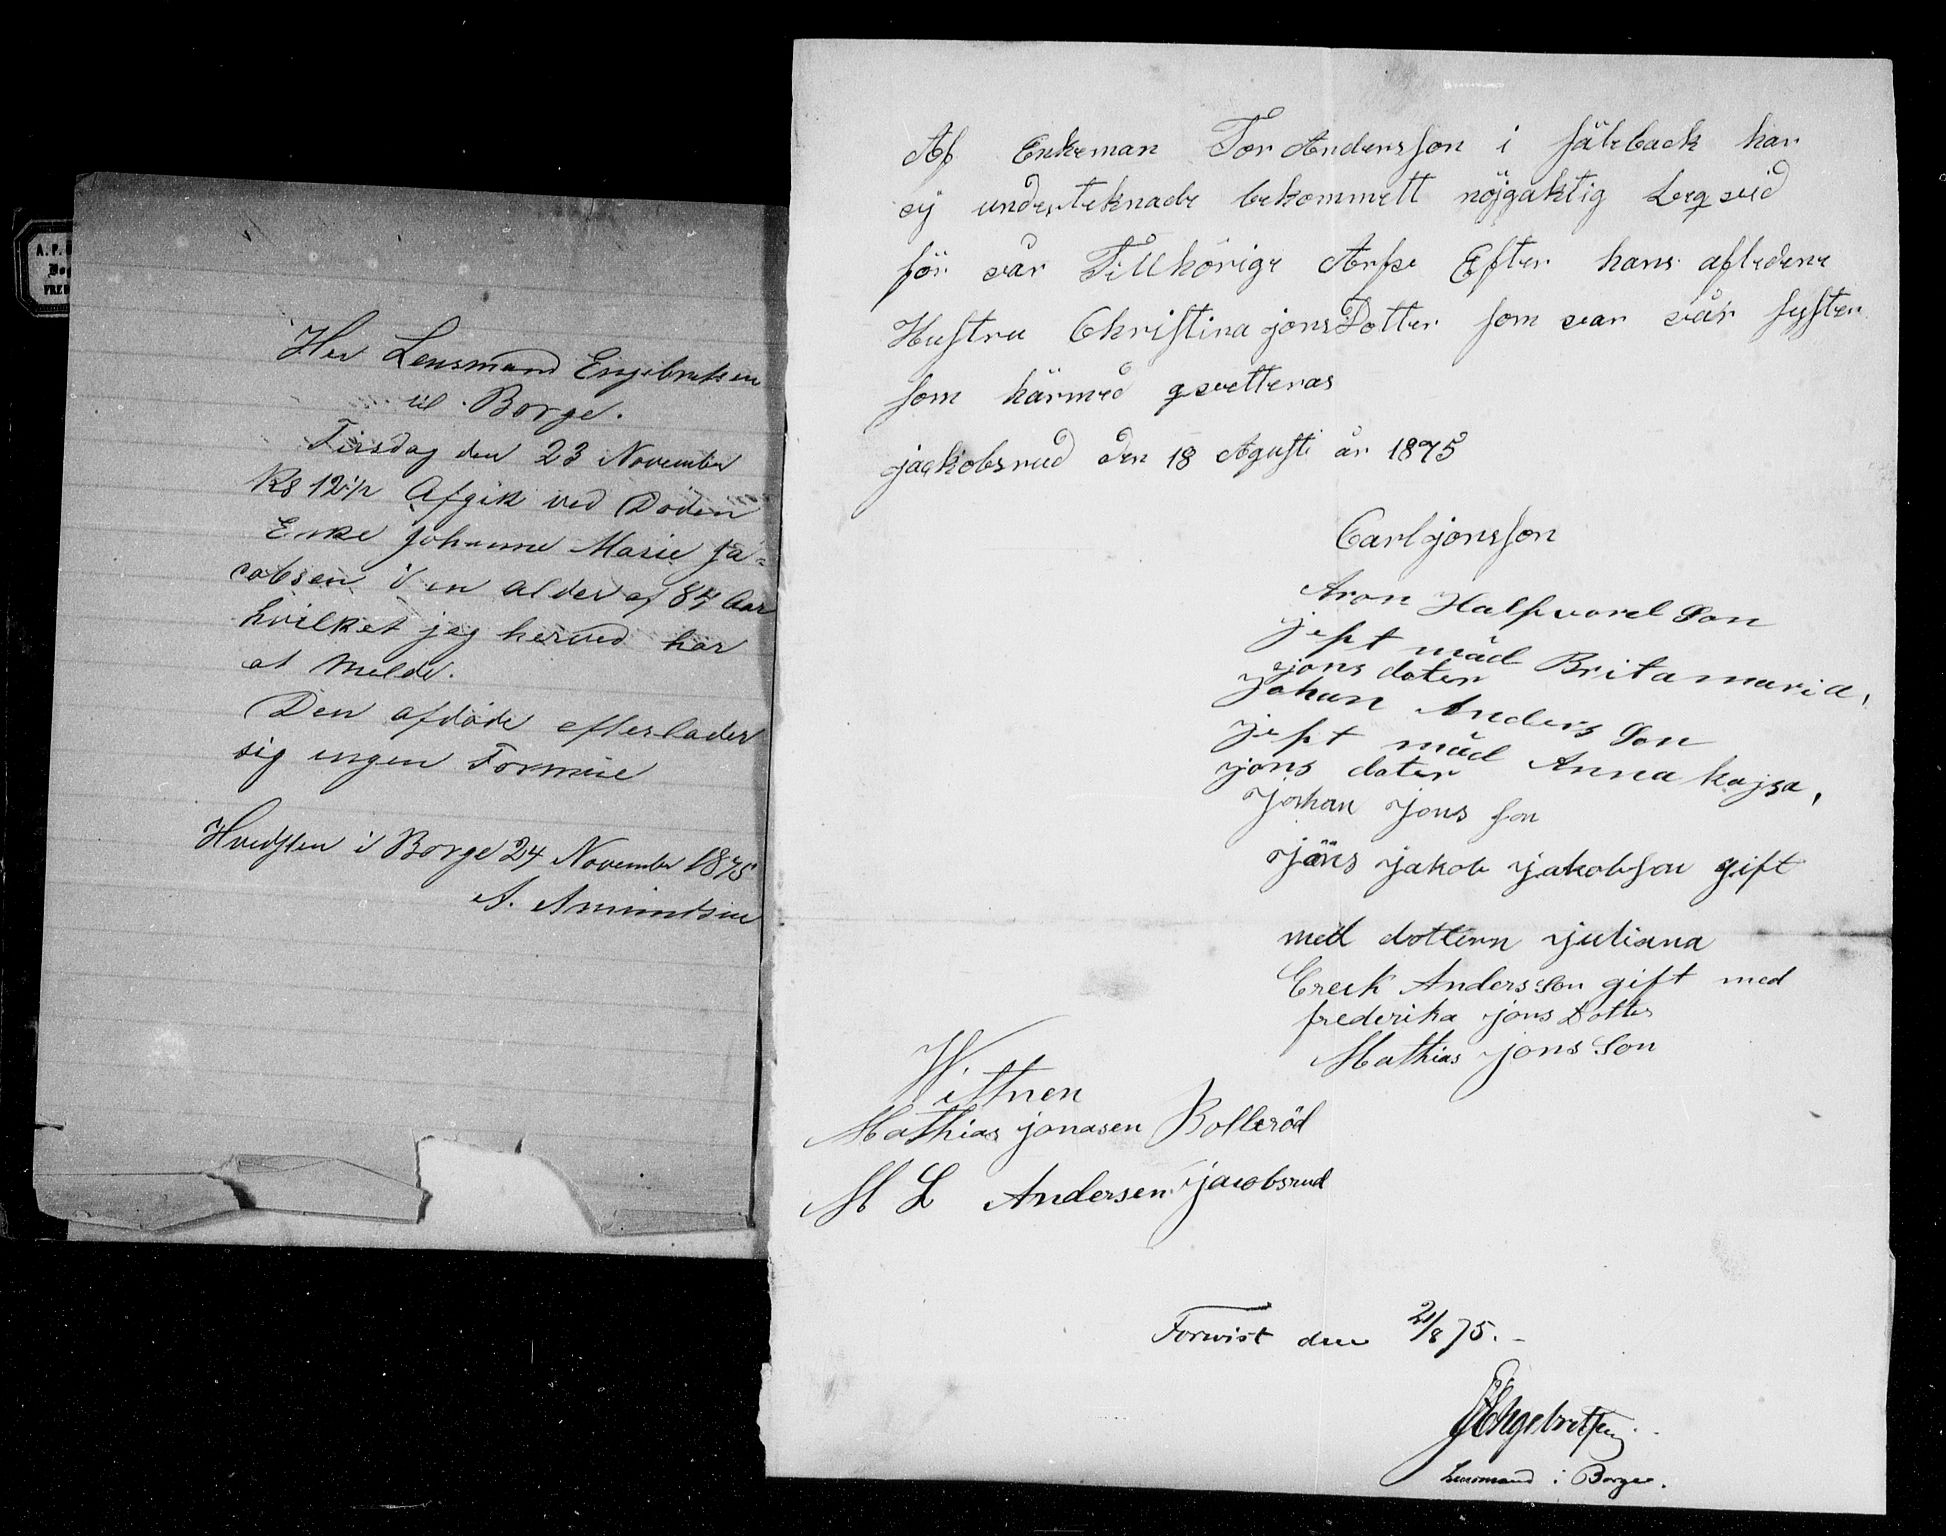 A. P.
FRED
Her Lensmand Engebretsen
til Borge.
Tirsdag den 23 November
Kl 12½ Afgik ved Døden
Enke Johanne Marie Ja-
cobsen i en alder af 84 Aar
hvilket jeg herved har
at Melde.
Den afdøde efterlader
sig ingen Formue
Hvidsten i Borge 24 November 1875
A. Amundsen
Af Enkeman Tor Andersson i Säleback har
vÿ underteknade bekommett nöjgaktig Leqvid
för var Tillhörige Arfve Efter hans afledene
Hustru Christina jonsDotter som var vår syster
som härmed qvetteras
jackobsrud den 18 Agusti år 1875
Carl jonsson
Aron Halfvord Son
jeft mäd Brita maria,
jons doter
Johan Anders Son
jeft mäd Anna kajsa,
jons doter
Johan Jons son
Jöns Jakob Jakobson gift
med dottern Juliana
Ereik Andersson gift med
frederika Jons Dotter
Mathias Jons Son
Wittnen
Mathias Jonasen Bolleröd
M L Andersen Jacobsrud
Forevist den 21/8 75.-
Engebretsen
Lensmand i Borge.